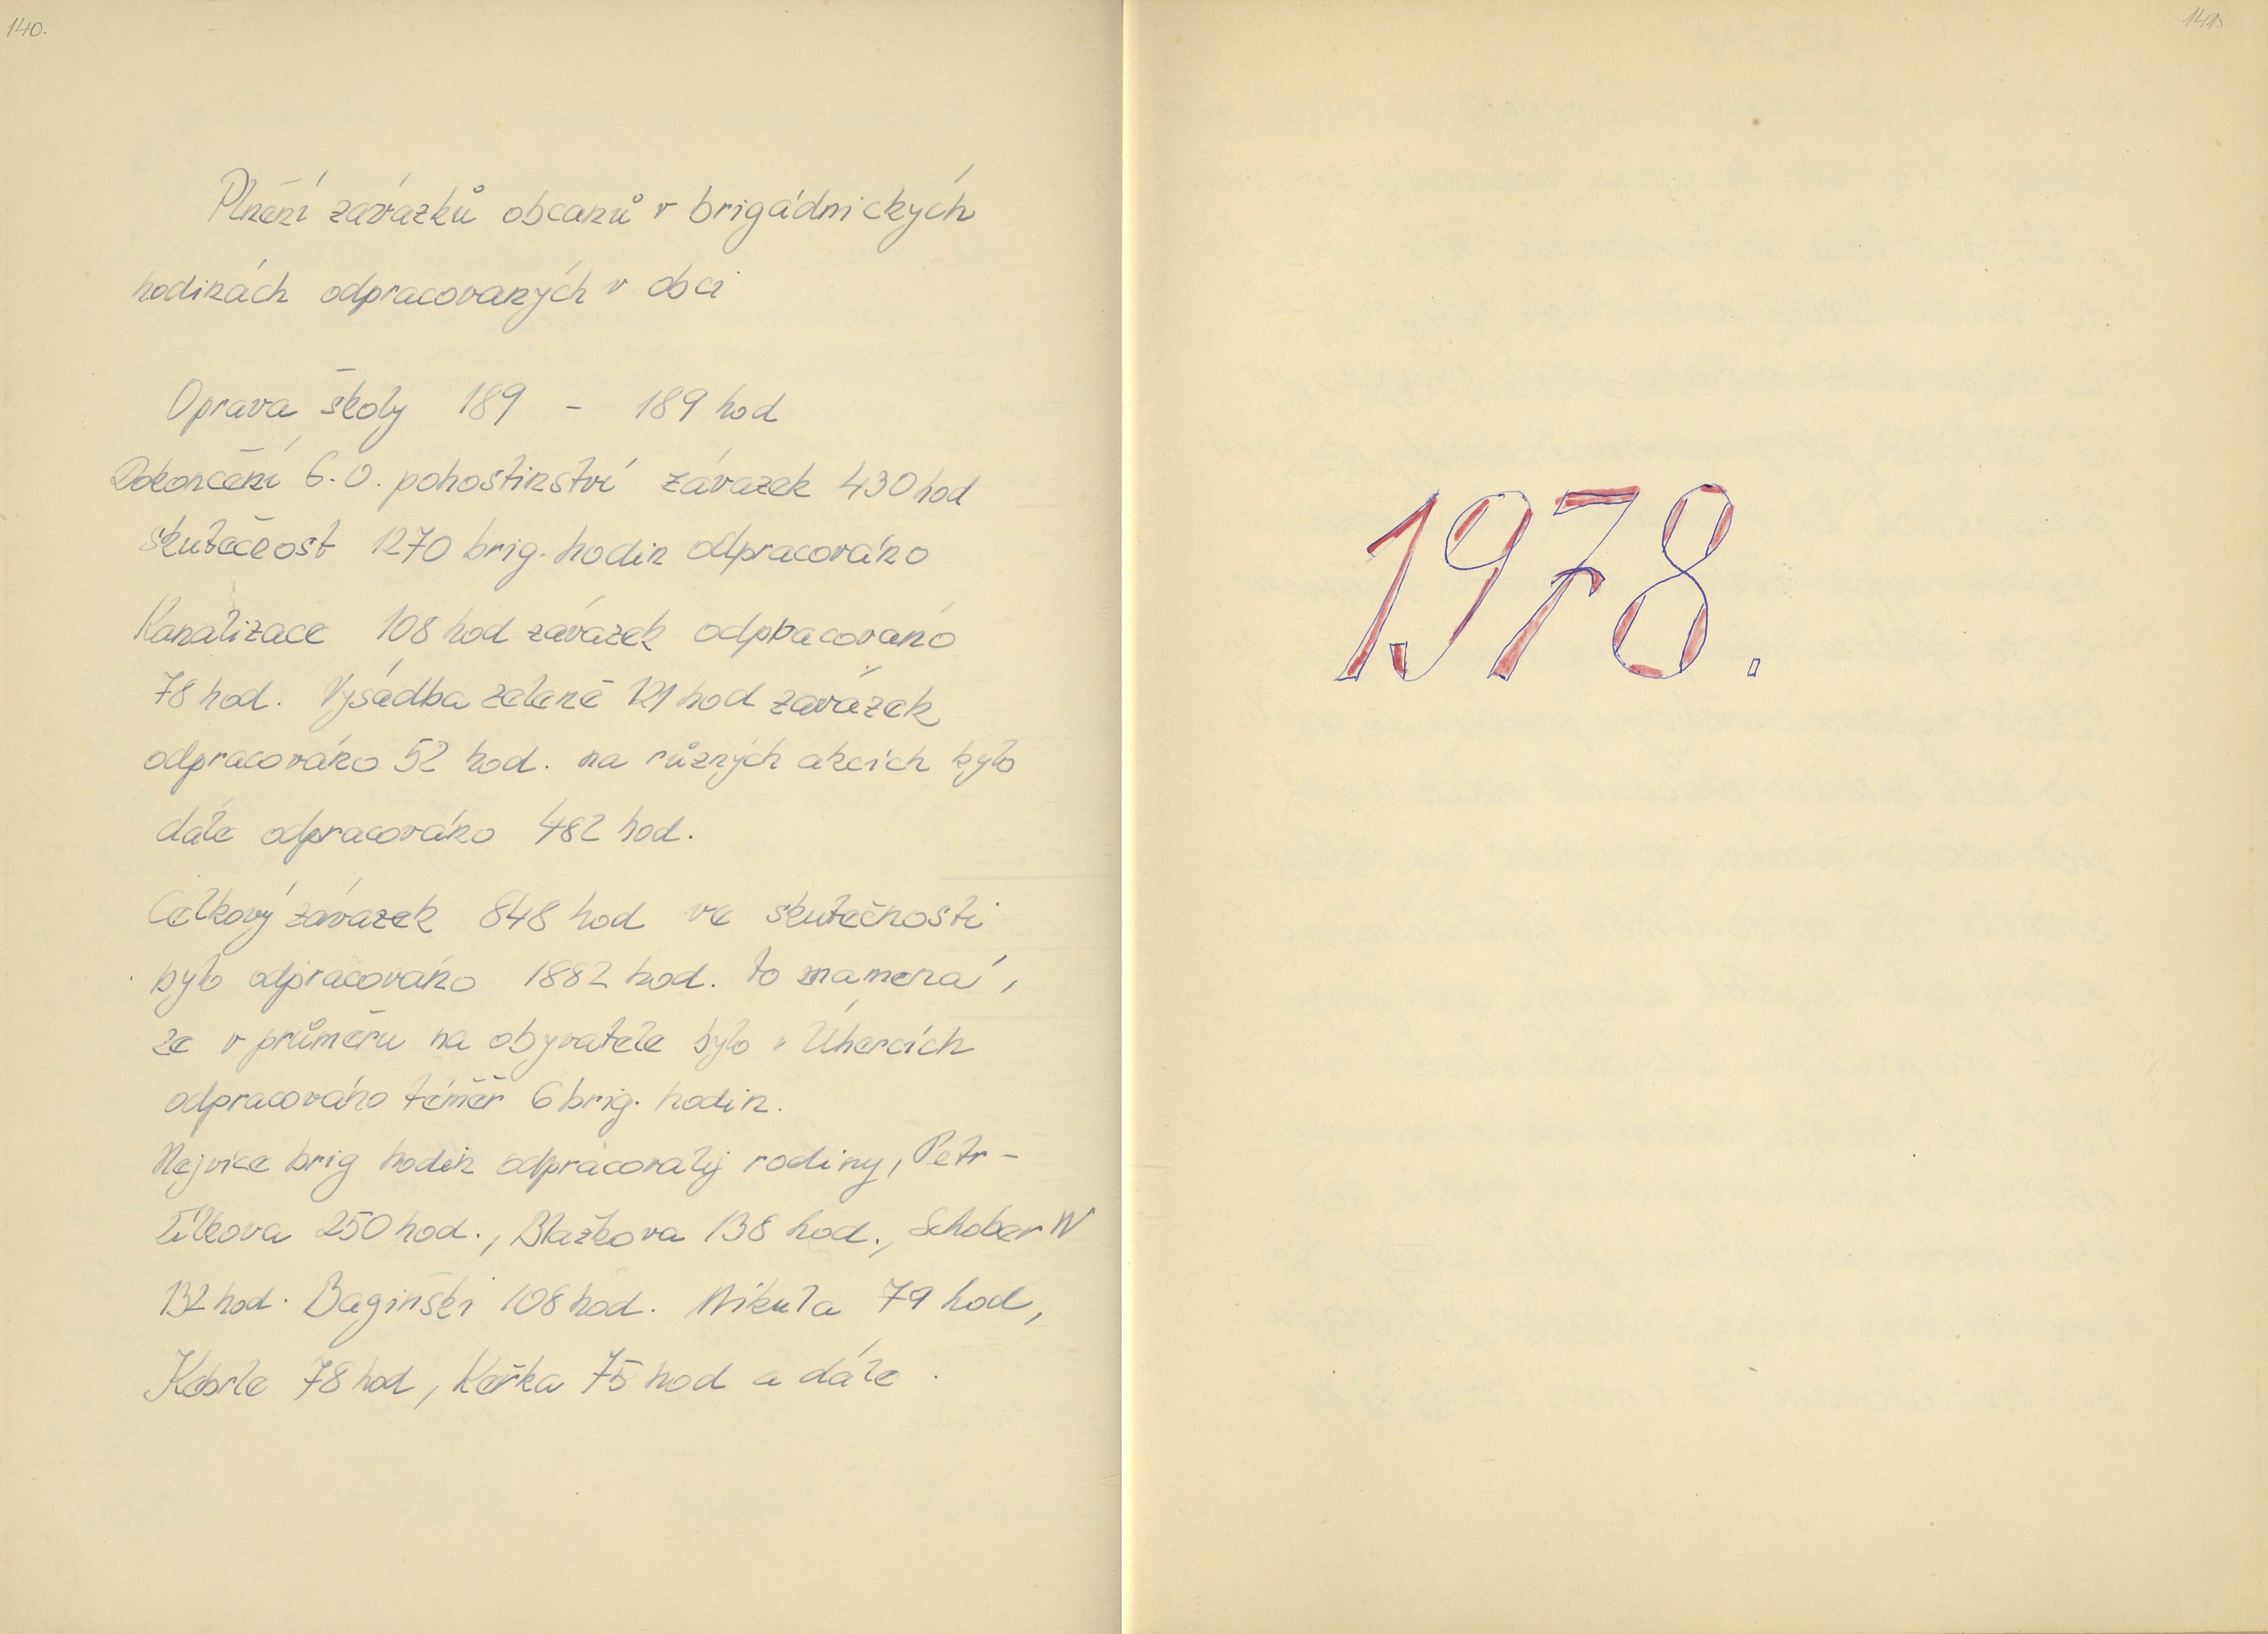 140.
Plnění závázků obcanů v brigádnických
hodinách odpracovaných v obci
Oprava školy 189 - 189 hod
Dokončení 6.0. pohostinství závazek 430 hod
skutečost 1270 brig. hodin odpracováno
Kanalizace 108 hod závazek odpracováno
78 hod. Vysádba zeleně 121 hod zavázek
odpracováno 52 hod. na různých akcích bylo
dále odpracováno 482 hod.
Celkový závazek 848 hod ve skutečnosti
bylo odpracováno 1882 hod. to znamená,
že v průměru na obyvatele bylo v Úhercích
odpracováno téměř 6 brig. hodin.
Nejvíce brig hodin odpracovaly rodiny, Petr-
líkova 250 hod., Blažkova 138 hod., Schober W
132 hod. Baginški 108 hod. Mikula 79 hod,
Kebrle 78 hod, Keřka 75 hod a dále.
141
1978.